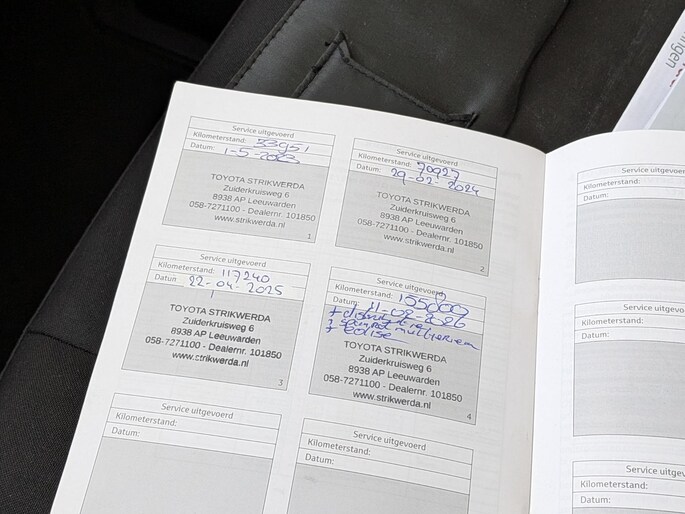 ingen
Service uitgevoerd
Kilometerstand: 33951
Datum: 1-5-2023
TOYOTA STRIKWERDA
Zuiderkruisweg 6
8938 AP Leeuwarden
058-7271100 - Dealernr. 101850
www.strikwerda.nl
1
Service uitgevoerd
Kilometerstand: 70927
Datum: 29-02-2024
TOYOTA STRIKWERDA
Zuiderkruisweg 6
8938 AP Leeuwarden
058-7271100 - Dealernr. 101850
www.strikwerda.nl
2
Service uitgevoerd
Kilometerstand: 117240
Datum: 22-04-2025
TOYOTA STRIKWERDA
Zuiderkruisweg 6
8938 AP Leeuwarden
058-7271100 - Dealernr. 101850
www.strikwerda.nl
3
Service uitgevoerd
Kilometerstand: 155000
Datum: 11-02-2026
+ distributie
+
+
TOYOTA STRIKWERDA
Zuiderkruisweg 6
8938 AP Leeuwarden
058-7271100 - Dealernr. 101850
www.strikwerda.nl
4
Service uitgevoerd
Kilometerstand:
Datum:
Service uitgevoerd
Kilometerstand:
Datum:
Service uitgev
Kilometerstand:
Datum:
Service uitgevo
Kilometerstand:
Datum:
Service uitgev
Kilometerstand:
Datum: